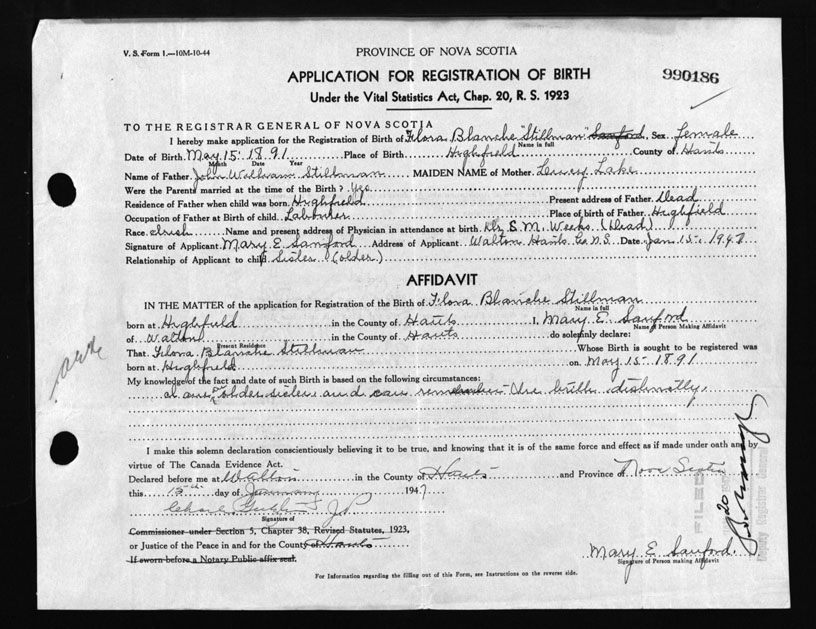 V. S. Form 1.—10M-10-44
PROVINCE OF NOVA SCOTIA
APPLICATION FOR REGISTRATION OF BIRTH
990186
Under the Vital Statistics Act, Chap. 20, R. S. 1923
TO THE REGISTRAR GENERAL OF NOVA SCOTIA
I hereby make application for the Registration of Birth of Flora Blanche "Stillman" Sanford, Sex Female
Name in full
Date of Birth May 15 1891 Place of Birth Highfield County of Hants
Month Date Year
Name of Father John William Stillman MAIDEN NAME of Mother Lake
Were the Parents married at the time of the Birth? Yes
Residence of Father when child was born Highfield Present address of Father Dead
Occupation of Father at Birth of child Labourer Place of birth of Father Highfield
Race Irish Name and present address of Physician in attendance at birth Dr S. M. Weeks (Dead)
Signature of Applicant Mary E Sanford Address of Applicant Walton Hants Co N.S. Date Jan 15 1947
Relationship of Applicant to child Sister (older)
AFFIDAVIT
IN THE MATTER of the application for Registration of the Birth of Flora Blanche Stillman
Name in full
born at Highfield in the County of Hants I, Mary E. Sanford
Name of Person Making Affidavit
of Walton in the County of Hants do solemnly declare:
Present Residence
That Flora Blanche Stillman Whose Birth is sought to be registered was
born at Highfield on May 15 1891
My knowledge of the fact and date of such Birth is based on the following circumstances:
older sister and can remember the birth distinctly.
I make this solemn declaration conscientiously believing it to be true, and knowing that it is of the same force and effect as if made under oath and by
virtue of The Canada Evidence Act.
Declared before me at Walton in the County of Hants and Province of Nova Scotia
this 15th day of January 1947
J P
Signature of
Commissioner under Section 5, Chapter 38, Revised Statutes, 1923,
or Justice of the Peace in and for the County of Hants
If sworn before a Notary Public affix seal.
Mary E. Sanford
Signature of Person making Affidavit
FILED
For Information regarding the filling out of this Form, see Instructions on the reverse side.